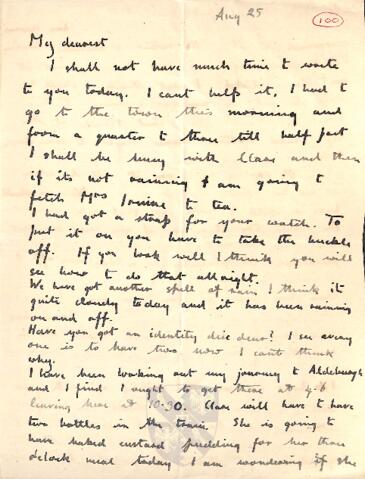 Aug 25
100
My dearest
I shall not have much time to write
to you today. I cant help it, I had to
go to the town this morning and
from a quarter to three till half past
I shall be busy with Clare and then
if its not raining I am going to
fetch Mrs to tea.
I had got a strap for your watch. To
put it on you have to take the buckle
off. If you look will I think you will
see how to do that allright.
We have got another spell of rain I think it
quite cloudy today and it has been raining
on and off.
Have you got an identity disc dear? I see every
one is to have two now I cant think
why.
I have been working out my journey to Aldeburgh
and I find I ought to get there at 4.6
leaving here at 10.30. Clare will have to have
two bottles in the train. She is going to
have baked custard pudding for her three
o'clock meal today I am wondering if she